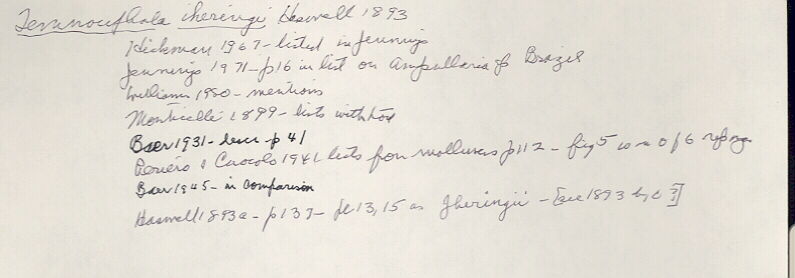 Temnocephala iheringi Haswell 1893
Hickman 1967 - listed in Jennings
Jennings 1971 - p16 in list on Ampullaria of Brazil
Williams 1980 - mentions
Monticelli 1899 - lists with host
Baer 1931 - descr p 41
Pereira & Cuocolo 1941 lists from molluscs p112 - fig 5 is a
Baer 1945 - in comparison
Haswell 1893a - p137 - pl 13, 15 as Jheringii - 1893 b, c ?]